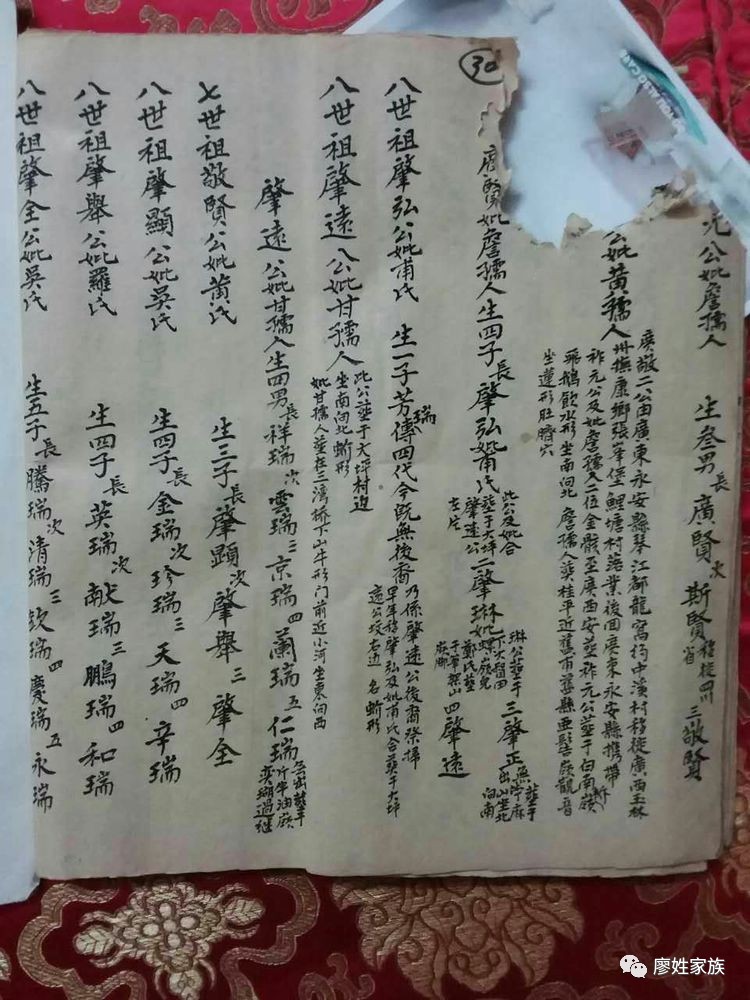 30
元公妣詹孺人 生叁男 長廣賢 次斯賢 移徙四川省 三敬賢
公妣黃孺人 廣敬二公由廣東永安縣琴江都龍窩約中溪村移徙廣西玉林
州撫康鄉張峯堡鯉塘村落業後回廣東永安縣携帶
祚元公及妣詹孺人二位金骸至廣西安葬祚元公葬于白南嶺
飛鵝飲水形坐南向北 詹孺人葵桂平近舊市舊縣亜髻嶺觀音
坐蓮形肚臍穴
廣賢妣詹孺人生四子 長肇弘妣甫氏 此公及妣合葬于大坪肇遠公左片 二肇琳妣 琳公葬于 三肇正 四肇遠
八世祖肇弘公妣甫氏 生一子芳瑞傳四代今既無後裔 乃係肇遠公後裔祭掃
早年移肇弘公及妣甫氏合葬于大坪
遠公坟右边 名蚶形
八世祖肇遠公妣甘孺人 此公葬于大坪村边
坐南向北蚶形
妣甘孺人葬在三湾橋下山牛形门前近小河坐東向西
肇遠公妣甘孺人生四男 長祥瑞 次雲瑞 三京瑞 四蘭瑞 五仁瑞
七世祖敬賢公妣黄氏 生三子 長肇顕 次肇舉 三肇全
八世祖肇顯公妣吳氏 生四子 長金瑞 次珍瑞 三天瑞 四辛瑞
八世祖肇舉公妣羅氏 生四子 長英瑞 次献瑞 三鵬瑞 四和瑞
八世祖肇全公妣吳氏 生五子 長騰瑞 次清瑞 三欽瑞 四慶瑞 五永瑞
廖姓家族